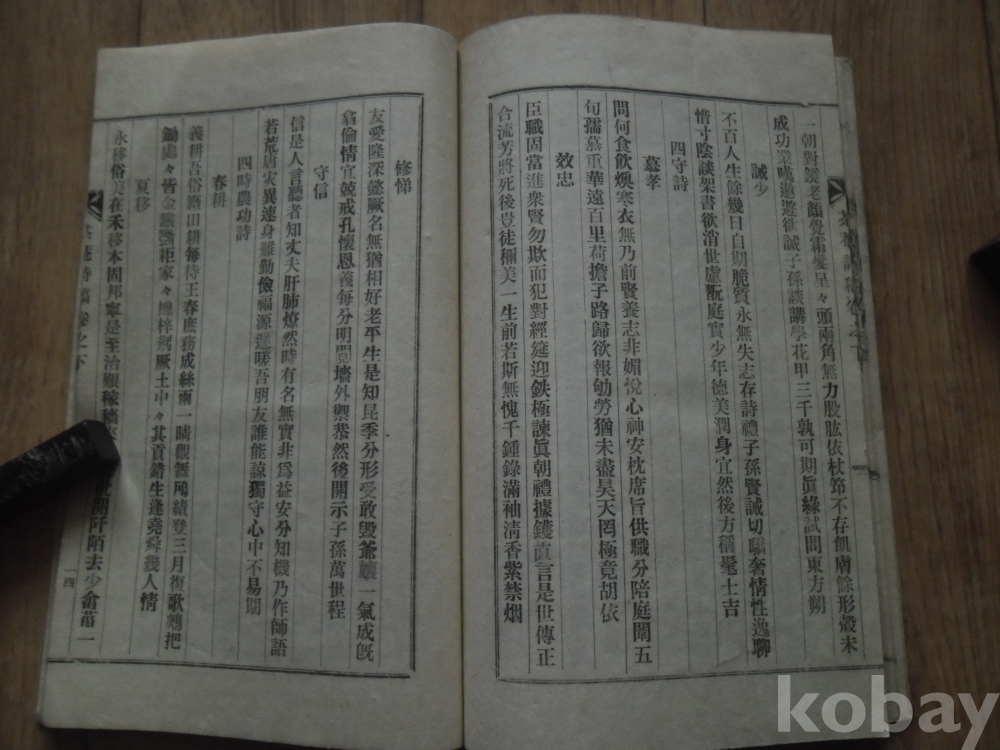 一朝對鏡老顏覺霜髮呈々頭兩角無力股肱依杖笻不存飢膚餘形殼未
成功業嘆遨遊欲誡子孫談講學花甲三千孰可期眞緣試問東方朔
誡少
不百人生餘幾日自期脆質永無失志存詩禮子孫賢誡切驕奢情性逸聊
惜寸陰談架書欲消世慮翫庭實少年德美潤身宜然後方稱髦士吉
四守詩
慕孝
問何食飮燠寒衣無乃前賢養志非媚悅心神安枕席旨供職分陪庭闈五
旬孺慕重華遠百里荷擔子路歸欲報劬勞猶未盡昊天罔極竟胡依
效忠
臣職固當進衆賢勿欺而犯對經筵迎鉄極諫眞朝禮據鑊直言是世傳正
合流芳將死後豈徒穪美一生前若斯無愧千鍾錄滿袖淸香紫禁烟
修悌
友愛隆深懿厥名無猶相好老平生是知昆季分形受敢毁爺孃一氣成旣
翕倫情宜兢戒孔懷恩義每分明鬩墻外禦恭然後開示子孫萬世程
守信
信是人言聽者知丈夫肝肺燎然時有名無實非爲益安分知機乃作師語
若荒唐灾異速身雖勤儉福源遲嗟吾朋友誰能諒獨守心中不易期
四時農功詩
春耕
義耕吾俗籍田耕每待王春庶務成絲雨一晴觀舞鳲績登三月復歌鶊把
鋤處々皆金鐵家々厥土中々其貢錯生逢堯舜幾人情
夏移
永移俗美在禾移本固邦寧是至治艱稼穡開阡陌去少畲菑一
一四
kobay